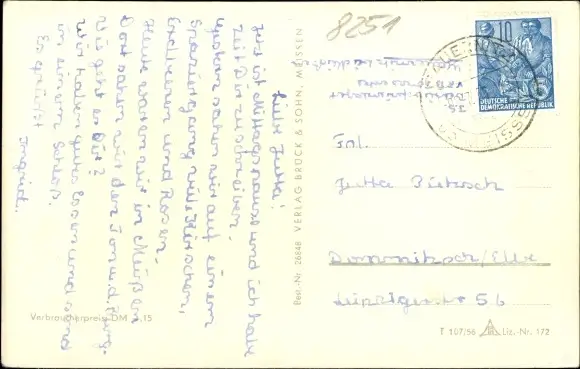 8251
Liebe Jutta!
Jetzt ist Mittagspause und ich habe
Zeit Dir zu schreiben.
Gestern sahen wir auf einem
Spaziergang viele Kirschen,
Erdbeeren und Rosen.
Heute waren wir in Meißen
Dort sahen wir den Dom u. d. Burg.
Wie geht es Dir?
Wir haben gutes Essen und sind
in einem Schloß.
Es grüßt
Ingrid.
Best.-Nr. 26848 VERLAG BRÜCK & SOHN, MEISSEN
10
DEUTSCHE
DEMOKRATISCHE REPUBLIK
Frl.
Jutta
Dommitzsch/Elbe
Leipzigerstr 56
Verbraucherpreis DM 0,15
T 107/56 Liz.-Nr. 172